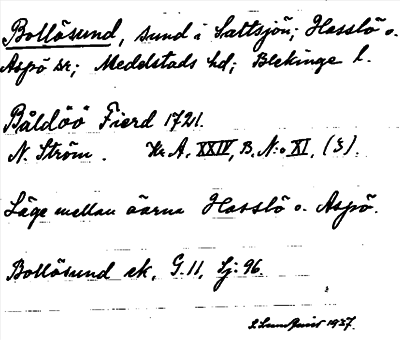 Bollösund, sund i Saltsjön; Hasslö o.
Aspö sr; Medelstads hd; Blekinge l.
Båldöö Fierd 1721.
N. Ström. Kr A. XXIV, B. N:o XI. (3).
Läge mellan öarna Hasslö o. Aspö.
Bollösund ek. G. 11, Sj: 96.
1937.